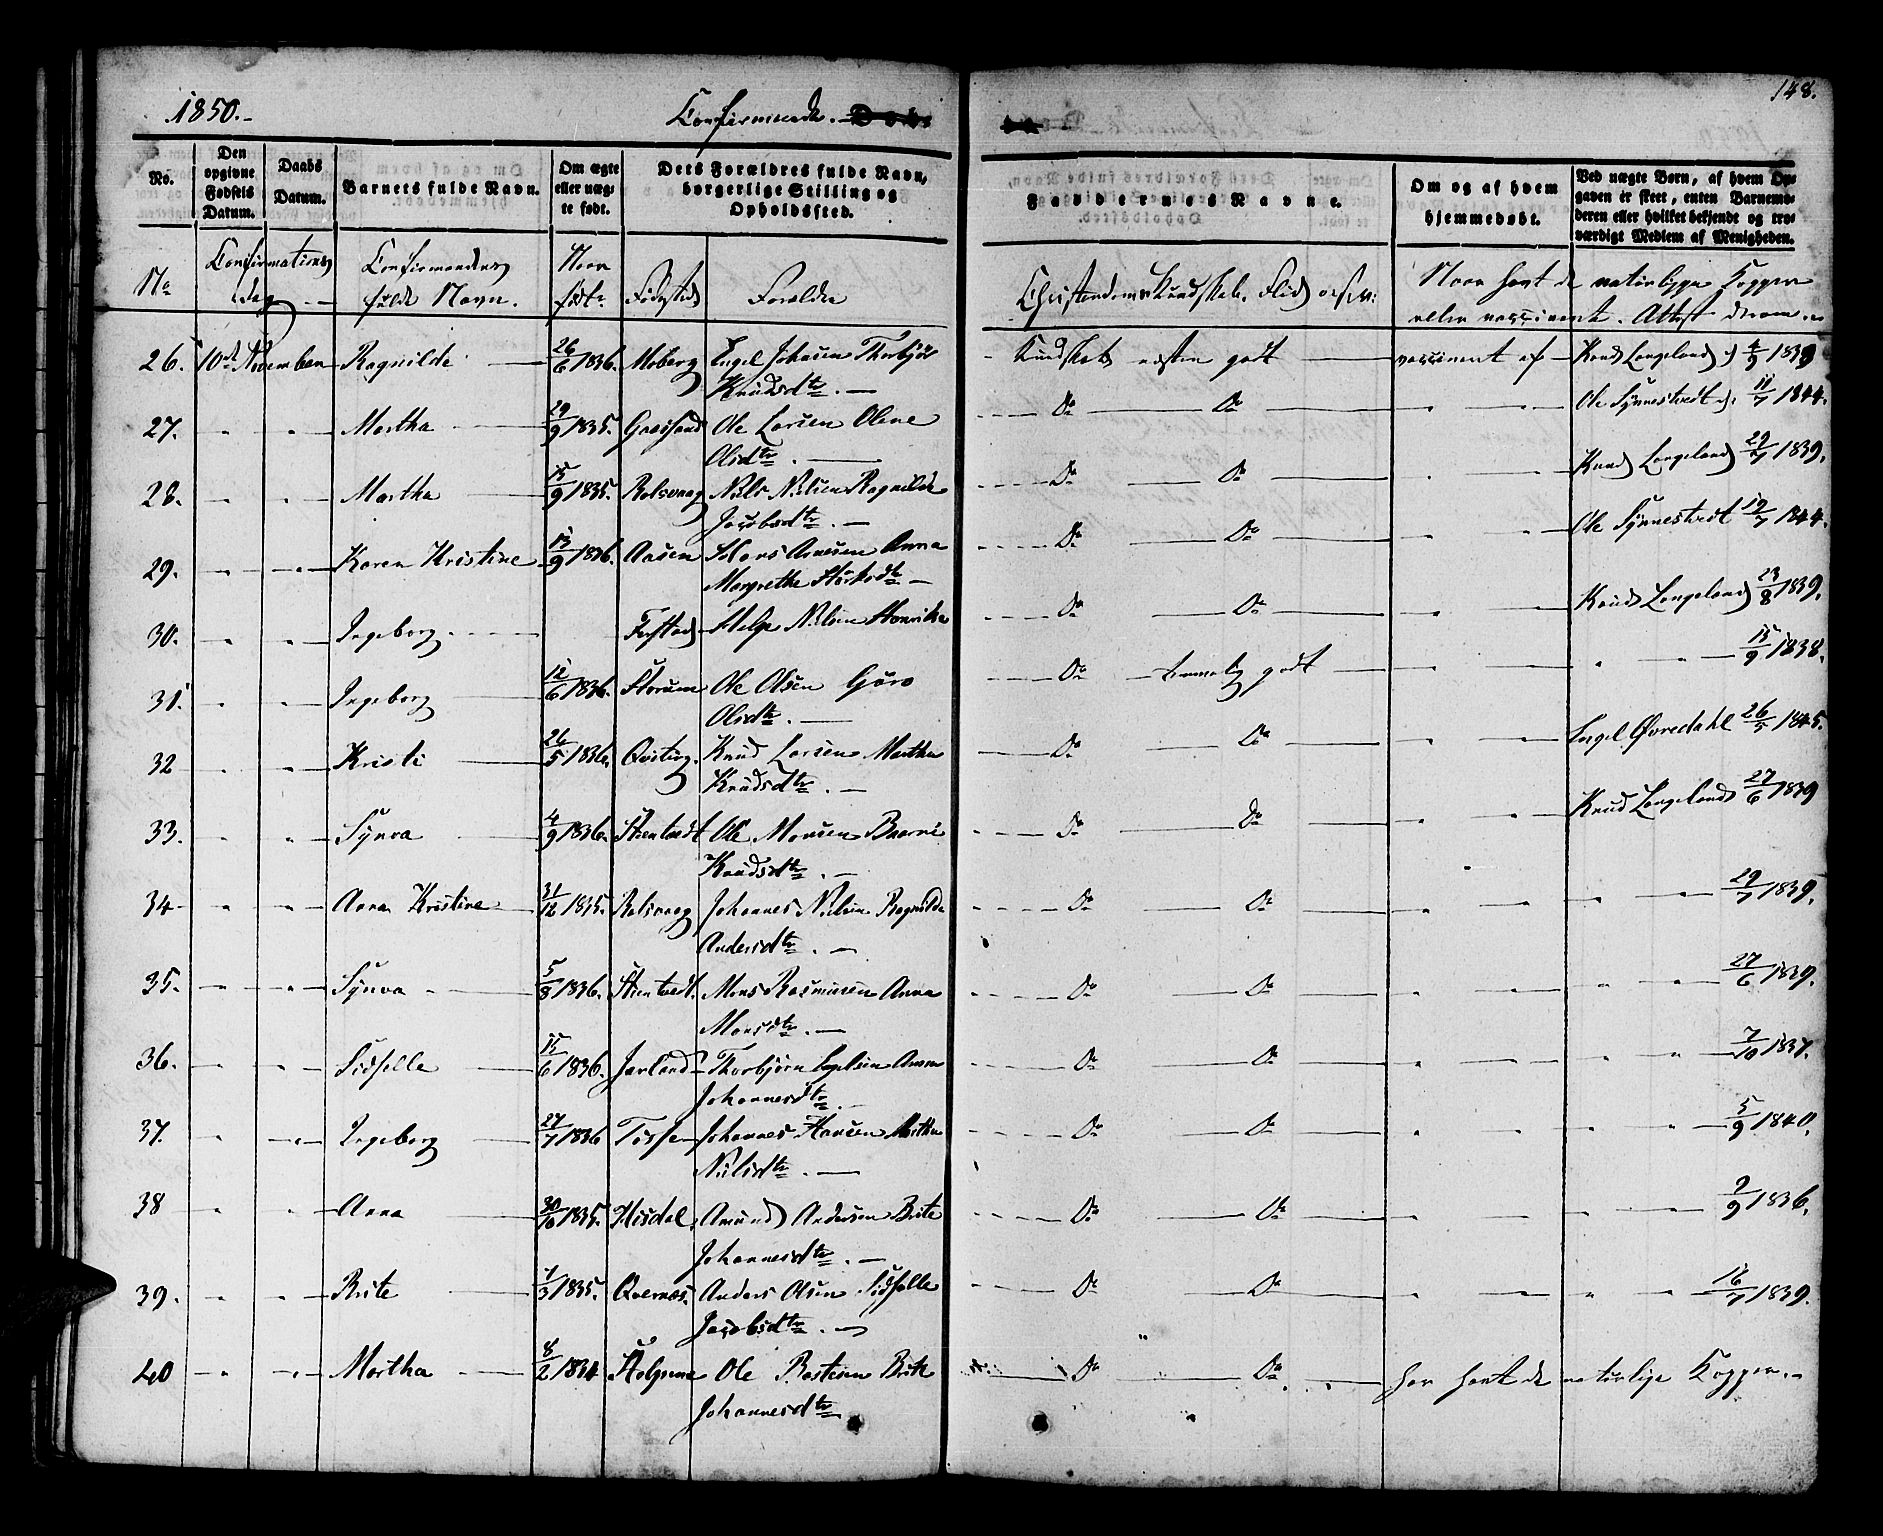 1850.-
Confirmerede. Døbte
148.
No.
Den opgivne Fødsels Datum.
Daabs Datum.
Barnets fulde Navn.
Om ægte eller uægte født.
Dets Forældres fulde Navn, borgerlige Stilling og Opholdssted.
Faddernes Navne.
Om og af hvem hjemmedøbt.
Ved uægte Børn, af hvem Opgaven er skeet, enten Barnemoderen eller hvilket bekjendt og troværdigt Medlem af Menigheden.
No Confirmations Dag Confirmandens fulde Navn. Naar født. Fødested Forældre Christendoms Kundskab, Flid Naar havt de naturlige Kopper
eller vaccineret. Attest derom.
26. 10de November Ragnilde 26/6 1836. Moberg Engel Johnsen Thorbjør Knudsdtr. Kundskab næsten godt vaccineret af Knud Langeland 4/9 1838
27. " " Martha 29/9 1835. Graasand Ole Larsen Olene Olsdtr. Do Do " " Ole Synnestvedt 11/7 1844.
28. " " Martha 15/9 1835. Rolsvaag Niels Nielsen Ragnilde Jacobsdtr. Do Do " Knud Langeland 29/7 1839.
29. " " Karen Kristine 13/9 1836. Aasen Hans Arnesen Anna Margrethe Do Do " " Ole Synnestvedt 19/7 1844.
30. " " Ingeborg Helge Nielsen Henrikke Do Do " " Knud Langeland 23/8 1839.
31. " " Ingeborg 12/6 1836. Storum Ole Olsen Guro Olsdtr. Do temmelig godt " " " " 15/9 1838.
32 " " Kristi 26/5 1836. Qvisting. Knud Larsen Martha Knudsdtr. Do Do " " Engel Øvredahl 26/5 1845.
33. " " Synva 4/9 1836. Stentvedt Ole Monsen Knudsdtr. Do Do Knud Langeland 27/6 1839
34 " " Anna Kristine 31/12 1835. Rolsvaag Johannes Nielsen Ragnilde Andersdtr. Do Do " " " " 29/7 1839.
35. " " Synva 5/8 1836. Stentvedt. Mons Rasmusen Anna Monsdtr. Do Do " " " " 27/6 1839.
36. " " Sidselle 15/6 1836. Jarland Thorbjørn Engelsen Anna Johannesdtr. Do Do " " " " 7/10 1837.
37. " " Ingeborg 27/7 1836 Tøsse Johannes Hansen Martha Nielsdtr. Do Do " " " " 5/9 1840.
38 " " Anna 30/10 1835. Hisdal. Amund Andersen Brite Johannesdtr. Do Do " " " 2/9 1836.
39. " " Brite 1/3 1835. Qvernæs. Anders Olsen Sidselle Jacobsdtr. Do Do " " " " 16/7 1839.
40 " " Martha 8/2 1834 Ole Bastesen Brite Johannesdtr Do Do har havt de naturlige Kopper.